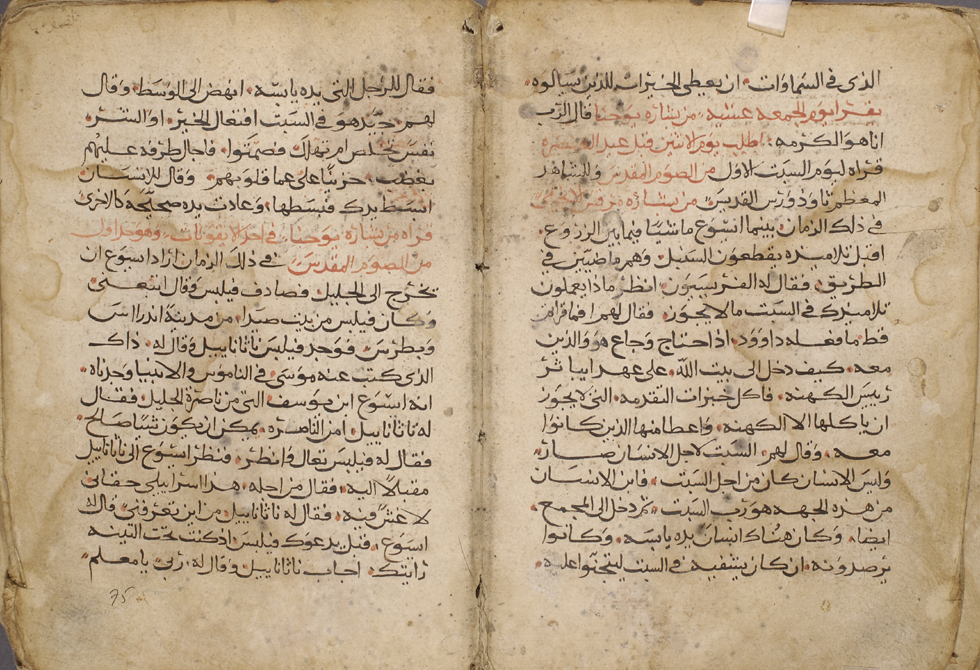 الذي في السماوات. ان يعطي الخيرات للذين يسالوه.
يقرا يوم الجمعه عشيه من بشاره يوحنا قال الرب
انا هو الكرمه اطلب يوم الاثنين قبل عيد
قراه ليوم السبت الاول من الصوم المقدس وللشاهد
المعظم تاودورس القديس. من بشاره مرقس الانجيلي
في ذلك الزمان بينما ايسوع ماشيا فيما بين الزروع.
اقبل تلاميذه يقطعون السنبل وهم ماضيين في
الطريق. فقال له الفريسيون. انظر ماذا يعملون
تلاميذك في السبت ما لا يجوز. فقال لهم اما قراتم
قط ما فعله داوود. اذ احتاج وجاع هو والذين
معه. كيف دخل الى بيت الله. على عهد ابياثر
رييس الكهنه. فاكل خبزات التقدمه. التي لا يجوز
ان ياكلها الا الكهنه. واعطا منها الذين كانوا
معه. وقال لهم. السبت لاجل الانسان صار.
وليس الانسان كان من اجل السبت. فابن الانسان
من هذه الجهه هو رب السبت. ثم دخل الى المجمع.
ايضا. وكان هناك انسان يده يابسه. وكانوا
يرصدونه. ان كان يشفيه في السبت ليتحيوا عليه.
فقال للرجل التي يده يابسه. انهض الى الوسط. وقال
لهم. جيد هو في السبت افتعال الخير. او الشر.
نفس تخلص ام تهلك فصمتوا. فاجال طرفه عليهم
بغضب. حزينا على عما قلوبهم وقال للانسان
ابسط يدك فبسطها. وعادت يده صحيحه كالاخرى
قراه من بشاره يوحنا. في احد الايقونات. وهو احد اول
من الصوم المقدس في ذلك الزمان اراد ايسوع ان
يخرج الى الجليل. فصادف فيلبس وقال اتبعني
وكان فيلبس من بيت صيدا. من مدينة اندراس
وبطرس. فوجد فيلبس ناثاناييل وقال له. ذاك
الذي كتب عنه موسى في الناموس والانبيا وجدناه.
انه ايسوع ابن يوسف التي من ناصرة الجليل. فقال
له ناثاناييل. امن الناصره. يمكن ان يكون شيا صالح.
فقال له فيلبس تعال وانظر. فنظر ايسوع الى ناثاناييل
مقبلا اليه. فقال من اجله. هذا اسراييلي حقاني
لا غش فيه. فقال له ناثاناييل من اين تعرفني قال له
ايسوع. قبل يدعوك فيلبس. اذ كنت تحت التينه
رايتك. اجاب ناثاناييل وقال له. ربي يا معلم
75